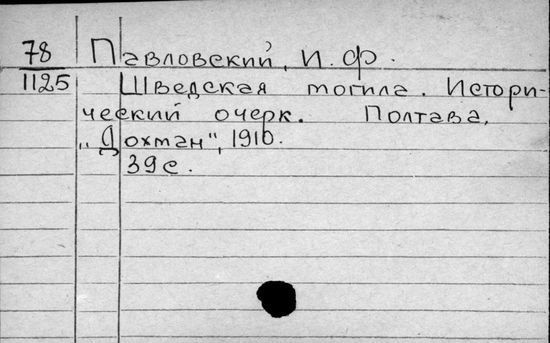 78 Павловский, И. Ф.
1125 Шведская могила. Истори-
ческий очерк. Полтава,
„Дохман", 1910.
39 с.